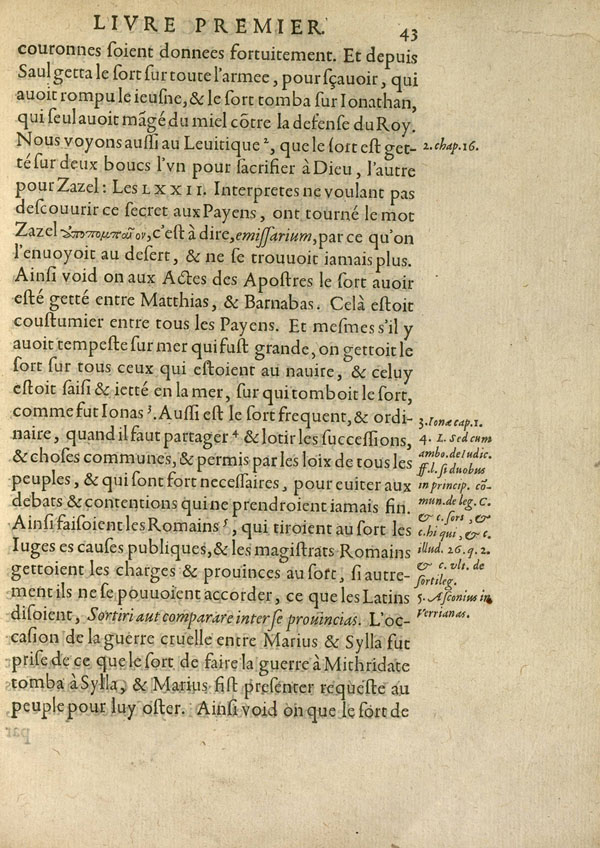 LIVRE PREMIER.
43
couronnes soient donnees fortuitement. Et depuis
Saul getta le sort sur toute l'armee, pour sçauoir, qui
auoit rompu le ieusne, & le sort tomba sur Ionathan,
qui seul auoit mãgé du miel cõtre la defense du Roy.
Nous voyons aussi au Leuitique ², que le sort est get-
té sur deux boucs l'vn pour sacrifier à Dieu, l'autre
pour Zazel: Les LXXII. Interpretes ne voulant pas
descouurir ce secret aux Payens, ont tourné le mot
Zazel ἀποπομπαῖον, c'est à dire, emissarium, par ce qu'on
l'enuoyoit au desert, & ne se trouuoit iamais plus.
Ainsi void on aux Actes des Apostres le sort auoir
esté getté entre Matthias, & Barnabas. Celà estoit
coustumier entre tous les Payens. Et mesmes s'il y
auoit tempeste sur mer qui fust grande, on gettoit le
sort sur tous ceux qui estoient au nauire, & celuy
estoit saisi & ietté en la mer, sur qui tomboit le sort,
comme fut Ionas ³. Aussi est le sort frequent, & ordi-
naire, quand il faut partager ⁴ & lotir les successions,
& choses communes, & permis par les loix de tous les
peuples, & qui sont fort necessaires, pour euiter aux
debats & contentions qui ne prendroient iamais fin.
Ainsi faisoient les Romains ⁵, qui tiroient au sort les
Iuges es causes publiques, & les magistrats Romains
gettoient les charges & prouinces au sort, si autre-
ment ils ne se pouuoient accorder, ce que les Latins
disoient, Sortiri aut comparare inter se prouincias. L'oc-
casion de la guerre cruelle entre Marius & Sylla fut
prise de ce que le sort de faire la guerre à Mithridate
tomba à Sylla, & Marius fist presenter requeste au
peuple pour luy oster. Ainsi void on que le sort de
2. chap. 16.
3. Ionæ cap. 1.
4. L. Sed cum
ambo. de Iudic.
ff. l. si duobus
in princip. cõ-
mun. de leg. C.
& c. sors, &
c. hi qui, & c.
illud. 26. q. 2.
& c. vlt. de
sortileg.
5. Asconius in
Verrianas.